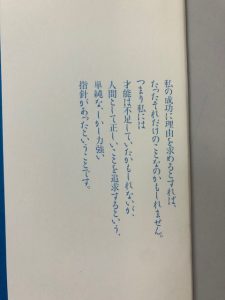 私の成功に理由を求めるとすれば、
たったそれだけのことなのかもしれません。
つまり私には
才能は不足していたかもしれないが、
人間として正しいことを追求するという、
単純な、しかし力強い
指針があったということです。